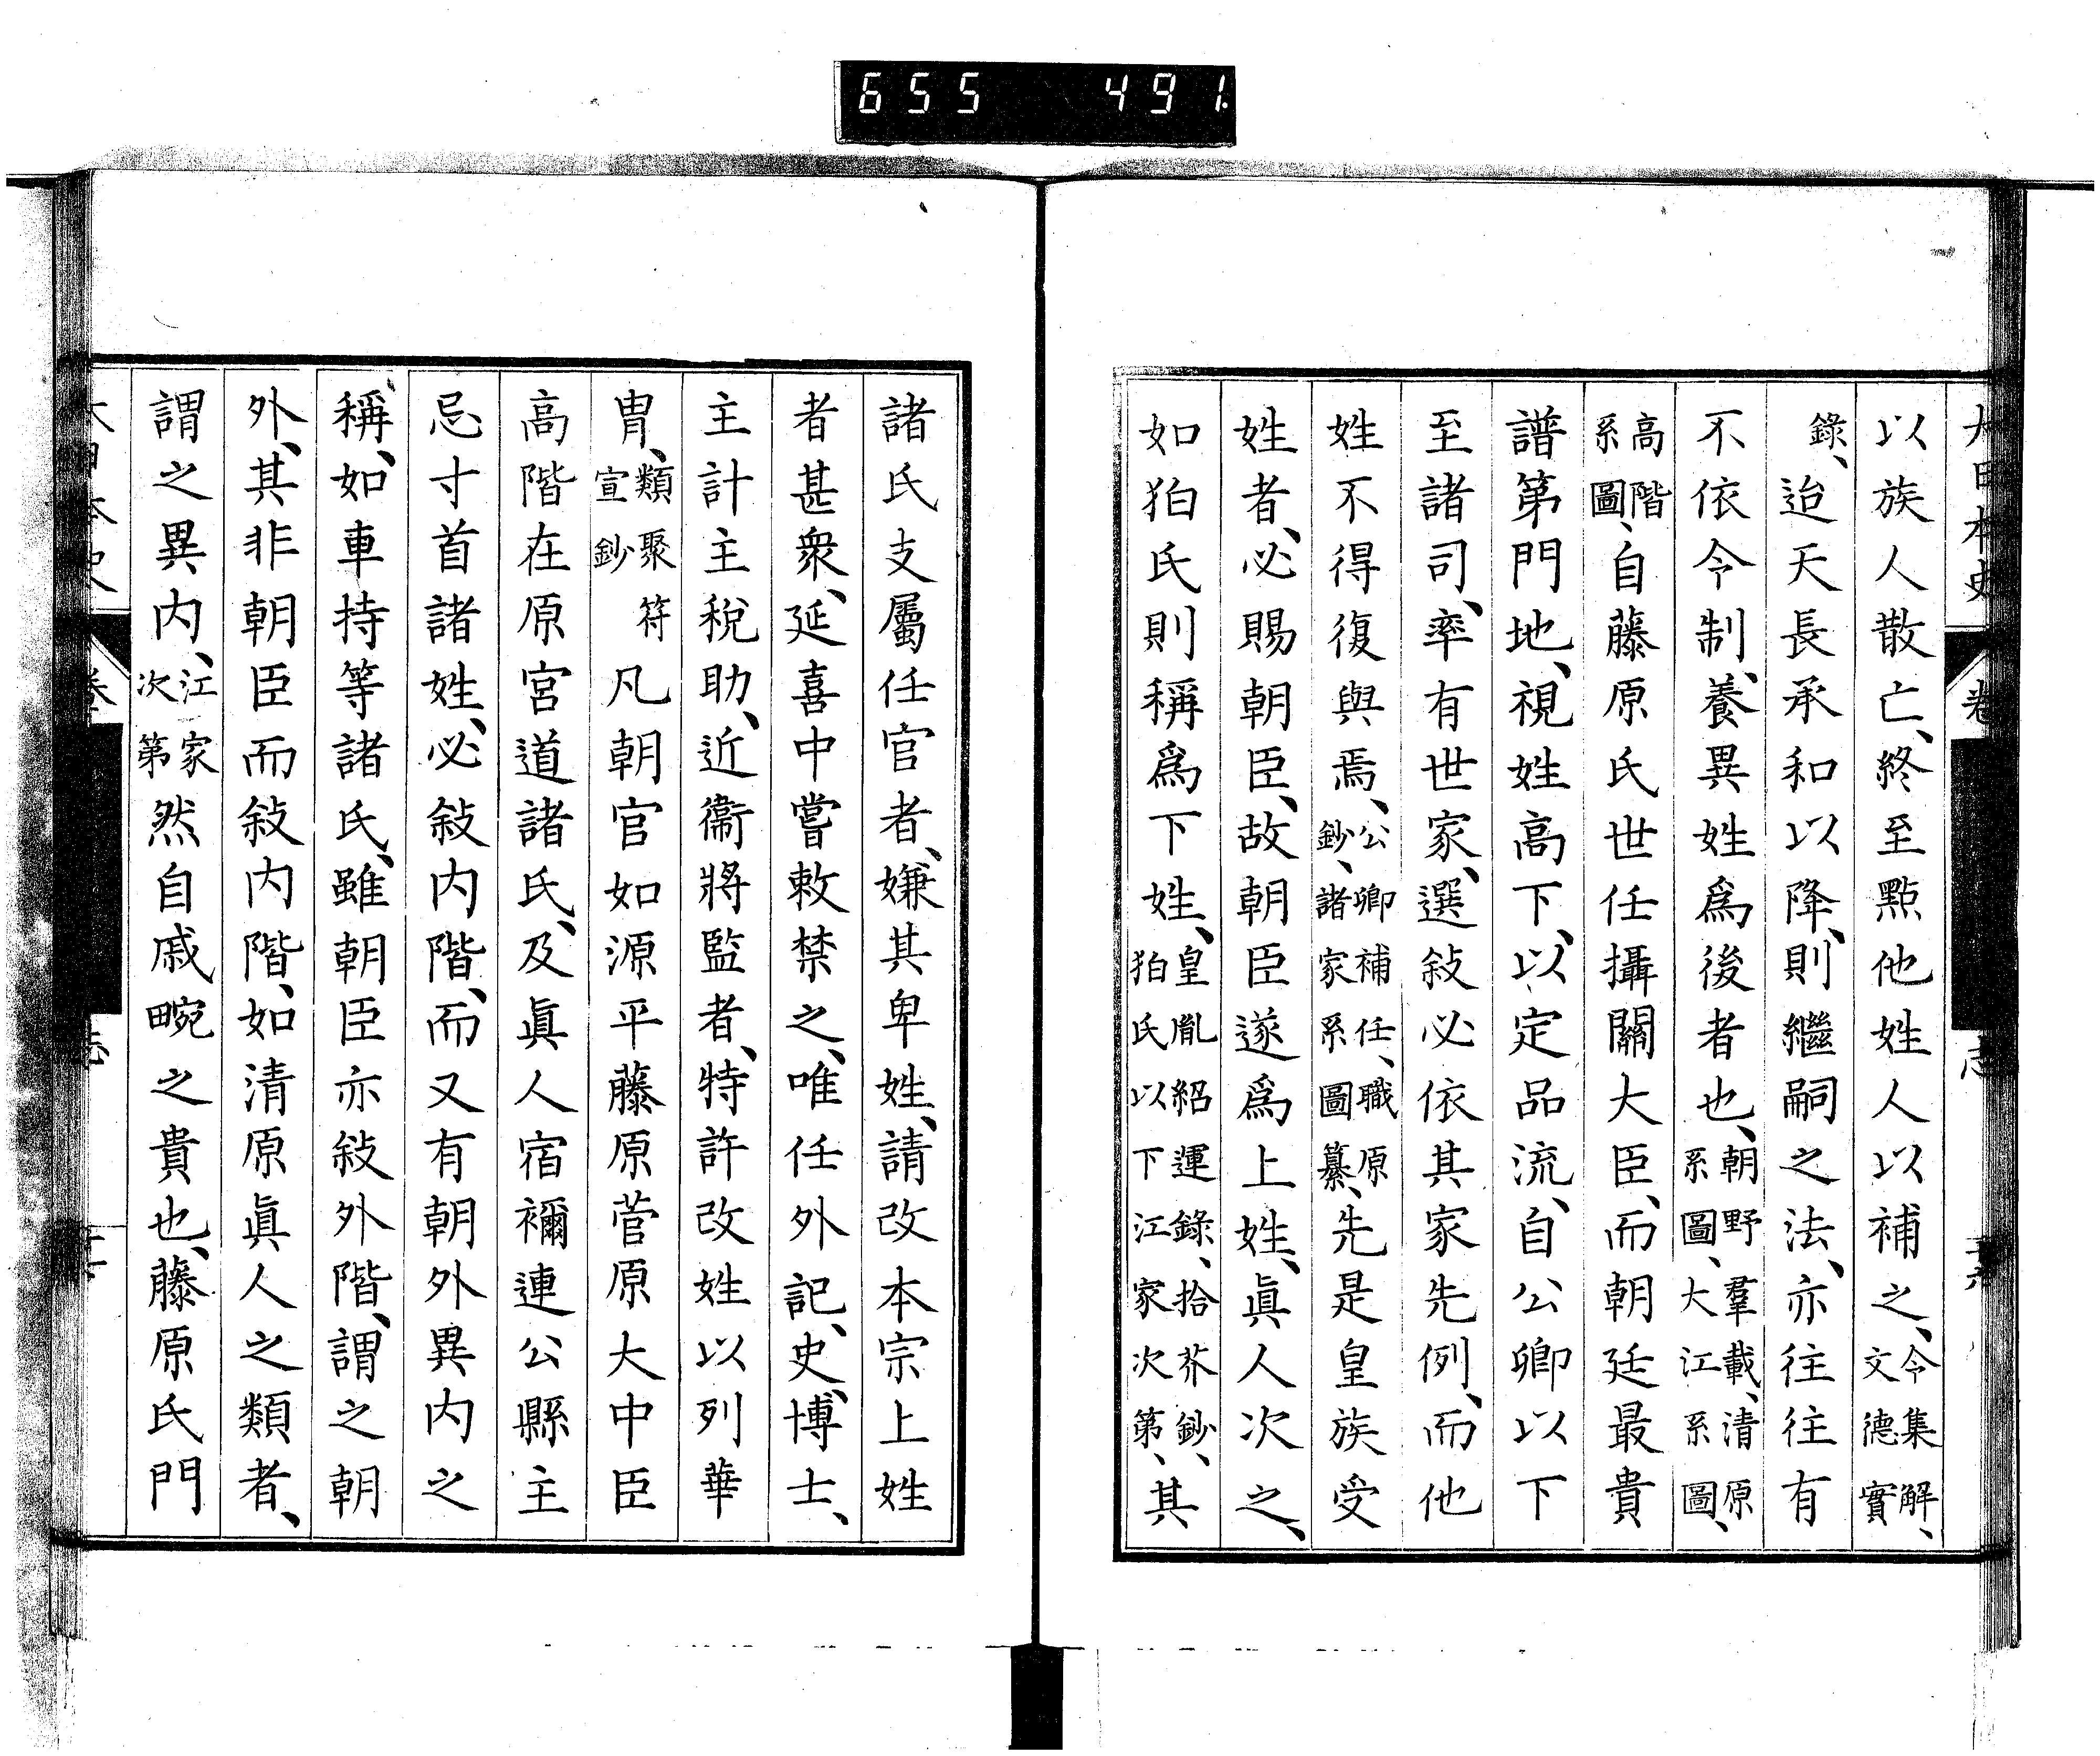 655 491.
大日本史 卷 志
以族人散亡、終至點他姓人以補之、令集解、文德實
錄、迨天長承和以降、則繼嗣之法、亦往往有
不依令制、養異姓爲後者也、朝野羣載、清原系圖、大江系圖、
高階系圖、自藤原氏世任攝關大臣、而朝廷最貴
譜第門地、視姓高下、以定品流、自公卿以下
至諸司、率有世家、選敍必依其家先例、而他
姓不得復與焉、公卿補任、職原鈔、諸家系圖纂、先是皇族受
姓者、必賜朝臣、故朝臣遂爲上姓、眞人次之、
如狛氏則稱爲下姓、皇胤紹運錄、拾芥鈔、狛氏以下江家次第、其
諸氏支屬任官者、嫌其卑姓、請改本宗上姓
者甚衆、延喜中嘗敕禁之、唯任外記、史、博士、
主計主稅助、近衞將監者、特許改姓以列華
冑、類聚符宣鈔 凡朝官如源平藤原菅原大中臣
高階在原宮道諸氏、及眞人宿禰連公縣主
忌寸首諸姓、必敍内階、而又有朝外異内之
稱、如車持等諸氏、雖朝臣亦敍外階、謂之朝
外、其非朝臣而敍内階、如清原眞人之類者、
謂之異内、江家次第 然自戚畹之貴也、藤原氏門
大日本史 卷 志